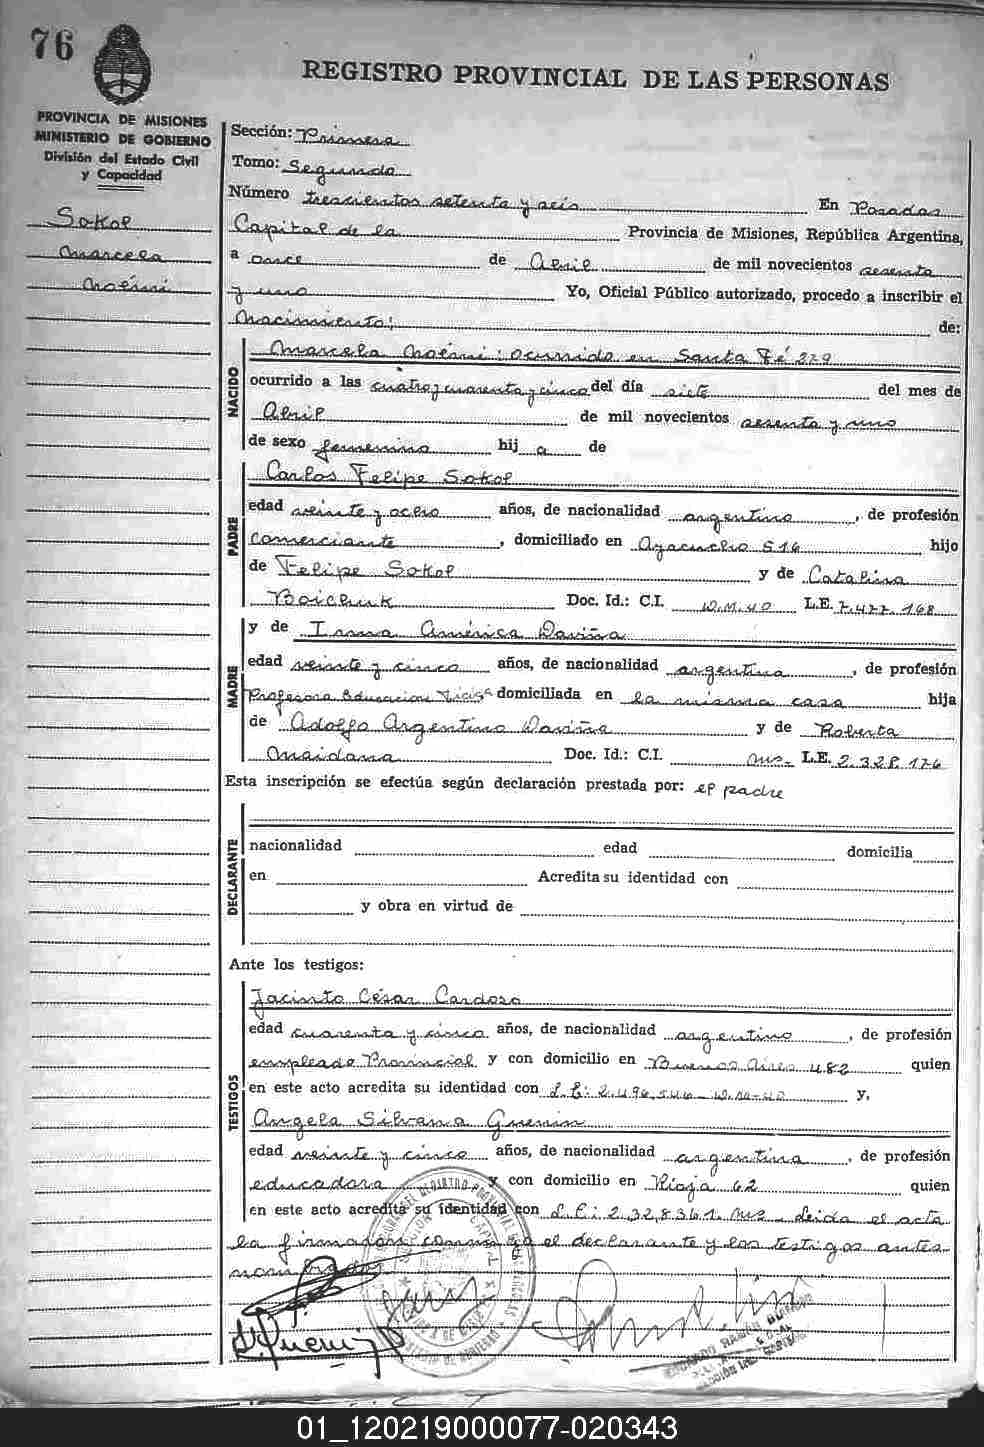 76
REGISTRO PROVINCIAL DE LAS PERSONAS
PROVINCIA DE MISIONES
MINISTERIO DE GOBIERNO
División del Estado Civil
y Capacidad
Sokol
Marcela
Noémi
Sección: Primera
Tomo: Segundo
Número trescientos setenta y seis En Posadas
Capital de la Provincia de Misiones, República Argentina,
a once de Abril de mil novecientos sesenta
y uno Yo, Oficial Público autorizado, procedo a inscribir el
Nacimiento: de:
NACIDO
Marcela Noémi: ocurrido en Santa Fé 279
ocurrido a las cuatro y cuarenta y cinco del día siete del mes de
Abril de mil novecientos sesenta y uno
de sexo femenino hij a de
PADRE
Carlos Felipe Sokol
edad veinte y ocho años, de nacionalidad argentino, de profesión
comerciante, domiciliado en Ayacucho 516 hijo
de Felipe Sokol y de Catalina
Boichuk Doc. Id.: C.I. D.M.40 L.E. 7.477.168
MADRE
y de Irma América Daviña
edad veinte y cinco años, de nacionalidad argentina, de profesión
Profesora Educacion Fisica domiciliada en la misma casa hija
de Adolfo Argentino Daviña y de Roberta
Maidana Doc. Id.: C.I. Mns- L.E. 2.328.176
Esta inscripción se efectúa según declaración prestada por: el padre
DECLARANTE
nacionalidad edad domicilia
en Acredita su identidad con
y obra en virtud de
Ante los testigos:
TESTIGOS
Jacinto César Cardozo
edad cuarenta y cinco años, de nacionalidad argentino, de profesión
empleado Provincial y con domicilio en Buenos Aires 482 quien
en este acto acredita su identidad con L.E: 2.496.546- D.M-40 y,
Angela Silvana Guenin
edad veinte y cinco años, de nacionalidad argentina, de profesión
educadora y con domicilio en Rioja 62 quien
en este acto acredita su identidad con L.C: 2.328361 Mns- Leida el acta
la firmaron conmigo el declarante y los testigos antes
nombrados
01_120219000077-020343